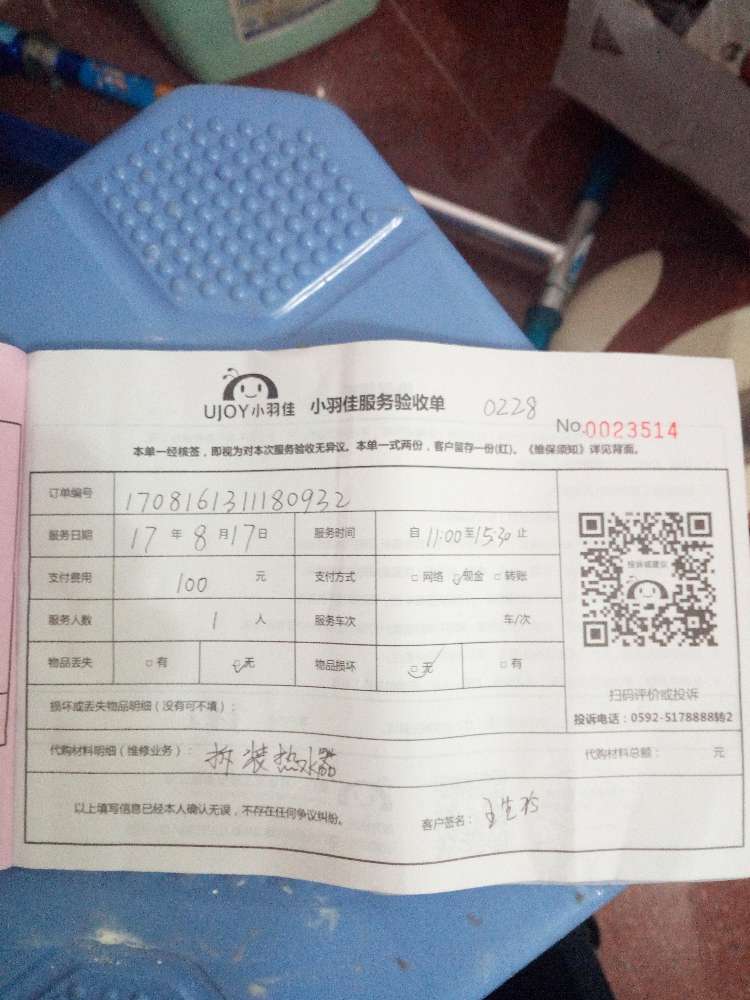 UJOY小羽佳 小羽佳服务验收单 0228
No.0023514
本单一经核签，即视为对本次服务验收无异议。本单一式两份，客户留存一份(红)。《维保须知》详见背面。
订单编号 1708161311180932
服务日期 17 年 8 月 17 日 服务时间 自 11:00 至 15:30 止
支付费用 100 元 支付方式 □ 网络 ☑ 现金 □ 转账
服务人数 1 人 服务车次 车/次
物品丢失 □ 有 ☑ 无 物品损坏 ☑ 无 □ 有
投诉或建议
扫码评价或投诉
投诉电话：0592-5178888转2
损坏或丢失物品明细（没有可不填）：
代购材料明细（维修业务）： 拆装热水器 代购材料总额： 元
以上填写信息已经本人确认无误，不存在任何争议纠纷。 客户签名：